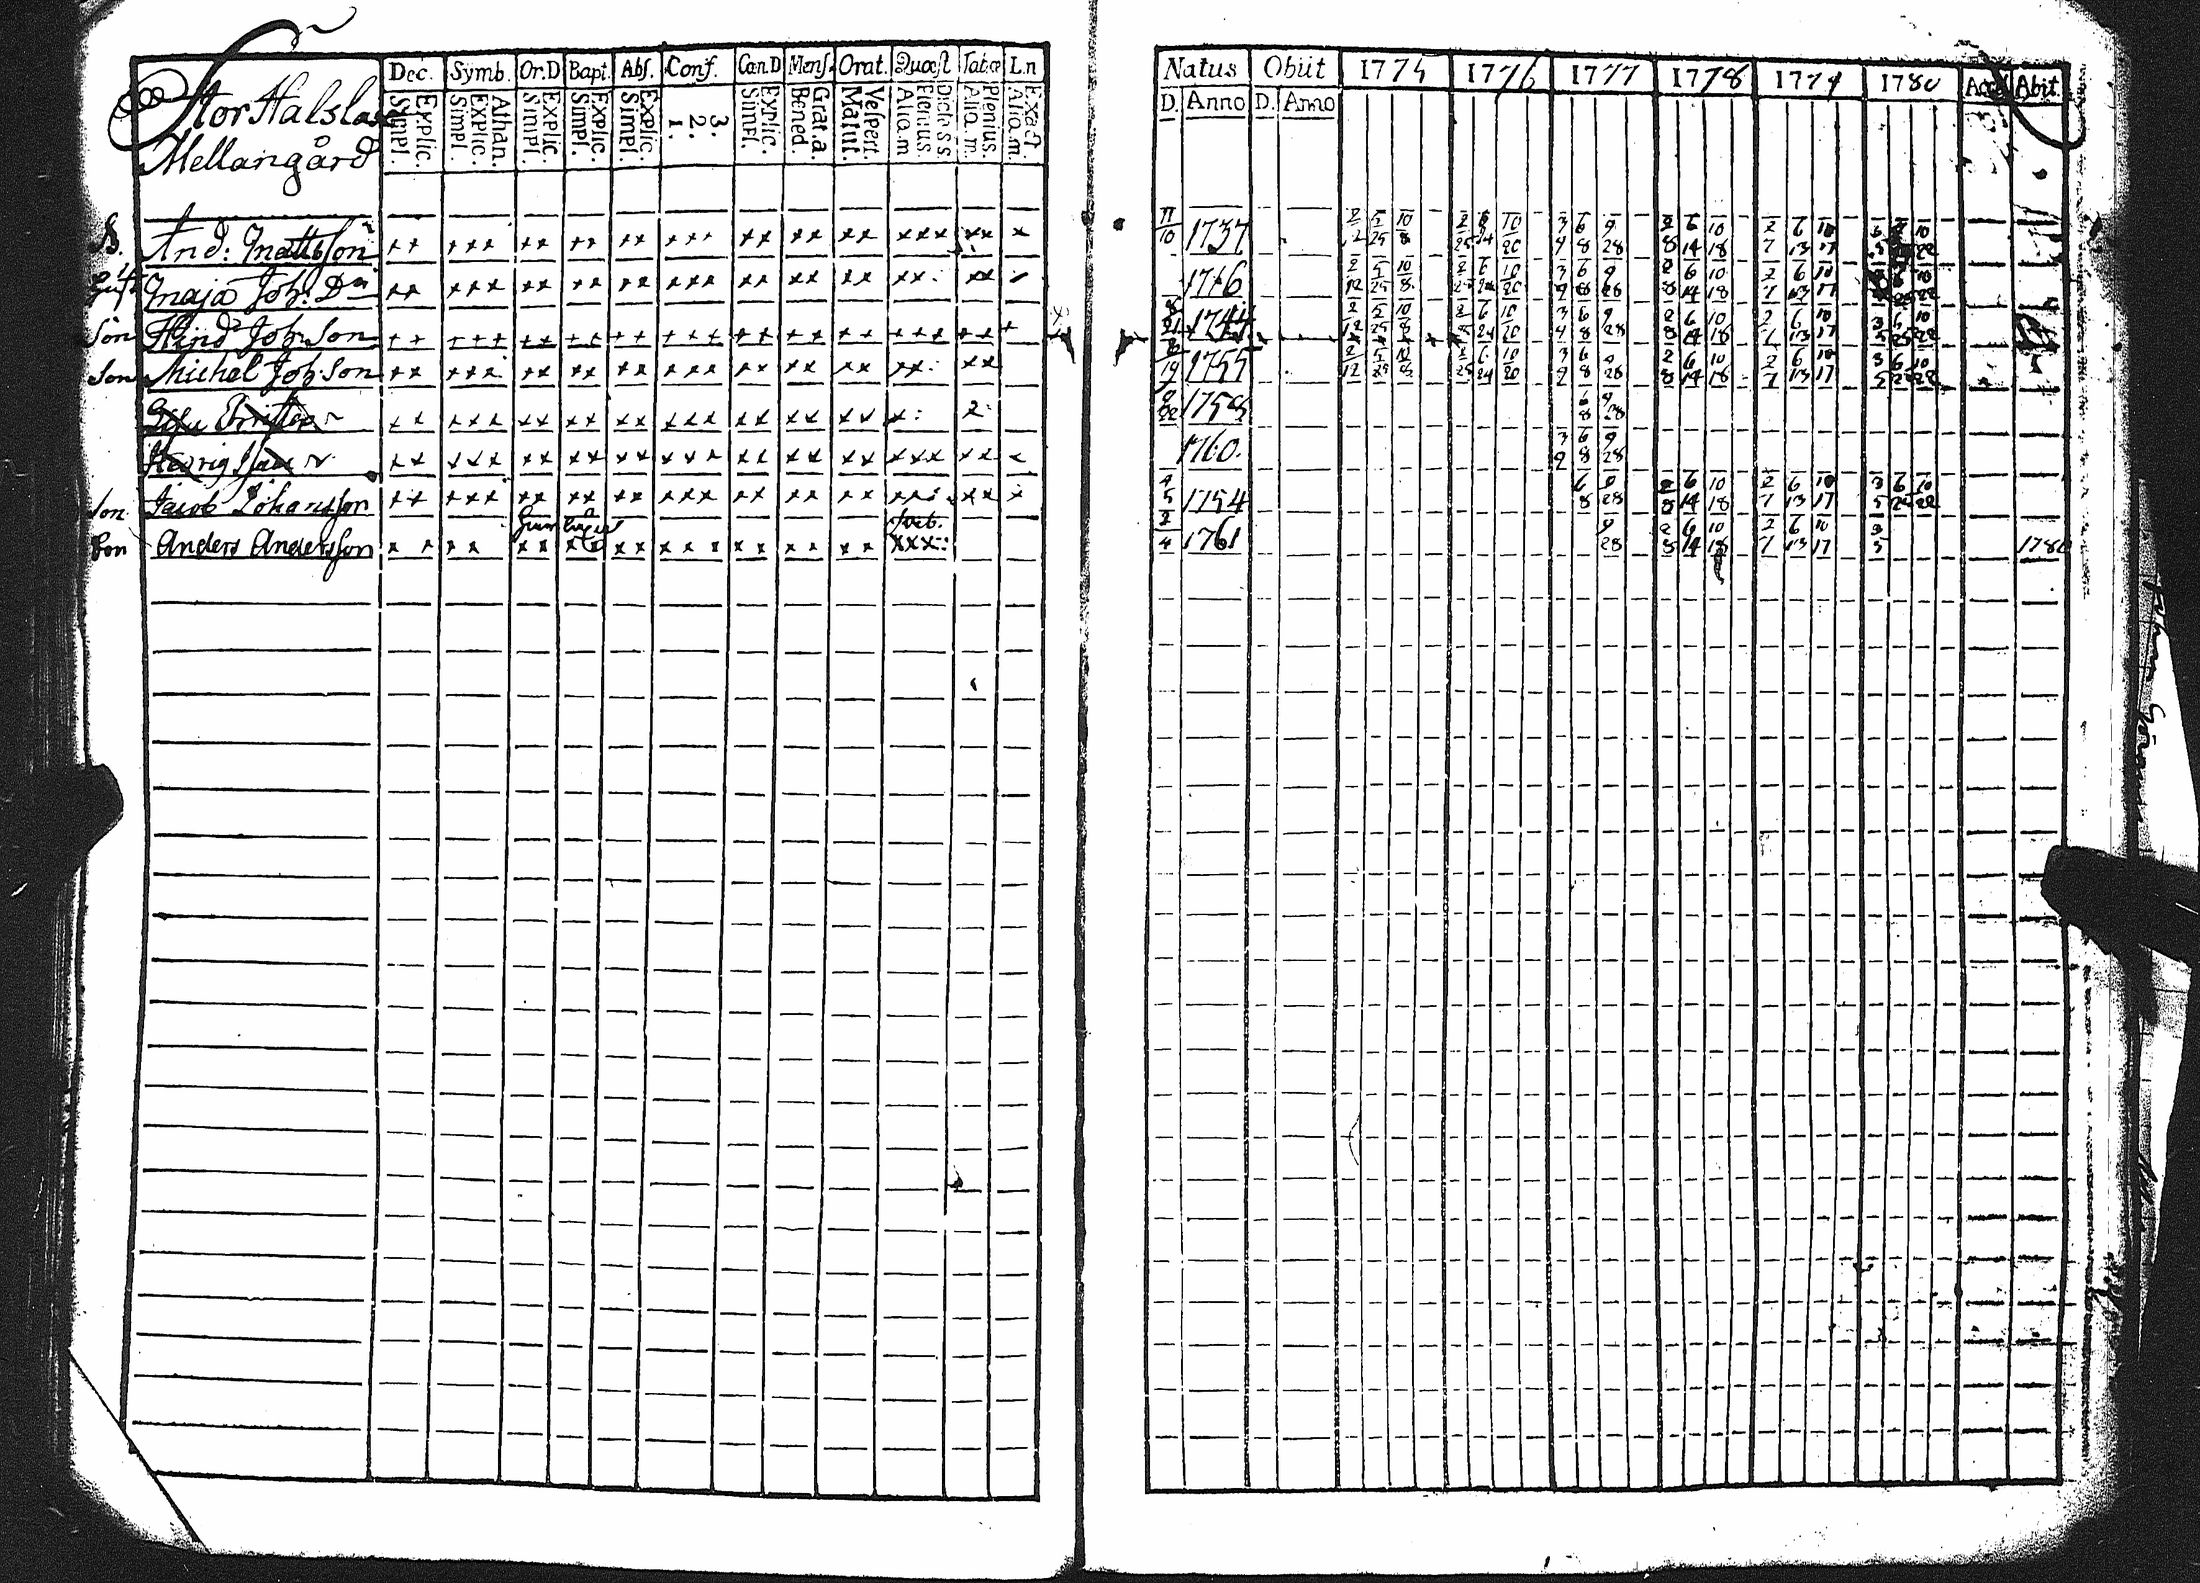 Stor Halsla
Mellangård
Dec. Symb. Or.D Bapt. Abs. Conf. Cœn.D Mens. Orat. Quæst Tabæ L.n
Simpl. Explic. Simpl. Explic. Athan. Simpl. Explic. Simpl. Explic. Simpl. Explic. 1. 2. 3. Simpl. Explic. Bened. Grat.a. Matut. Vespert. Alio.m Plenius. Dicto S S Alia.m. Plenius. Alio.m. Exact.
And: Mattsson xx xxx xx xx xx xxx xx xx xx xxx xx x
Maja Joh: Dr xx xxx xx xx xx xxx xx xx xx xx: xx
Son Hind Joh:Son ++ +++ ++ ++ ++ +++ ++ ++ ++ +++ ++ +
Son Michel Joh:Son xx xxx xx xx xx xxx xx xx xx xx: xx
xx xxx xx xx xx xxx xx xx xx x: 2:
xx xxx xx xx xx xxx xx xx xx xxx xx x
Son Jacob Johansson xx xxx xx xx xx xxx xx xx xx xxx xx x
Son Anders Andersson xx xx xx xx xx xxx xx xx xx xxx:
Natus Obiit 1775 1776 1777 1778 1779 1780 Acc Abit.
D. Anno D. Anno
11/10 1737 2/12 5/25 10/8 2/25 6/24 10/20 3/9 6/8 9/28 2/8 6/14 10/18 2/7 6/13 10/17
1746 2/12 5/25 10/8 2/25 6/24 10/20 3/9 6/8 9/28 2/8 6/14 10/18 2/7 6/13 10/17
1744 2/12 5/25 10/8 2/25 6/24 10/20 3/9 6/8 9/28 2/8 6/14 10/18 2/7 6/13 10/17 3/5 6/25 10/22
1755 2/12 5/25 10/8 2/25 6/24 10/20 3/9 6/8 9/28 2/8 6/14 10/18 2/7 6/13 10/17 3/5 6/25 10/22
6/8 9/28
1760. 3/9 6/8 9/28
4/5 1754 6/8 9/28 2/8 6/14 10/18 2/7 6/13 10/17 3/5 6/25 10/22
2/4 1761 9/28 2/8 6/14 10/18 2/7 6/13 10/17 3/5 1780